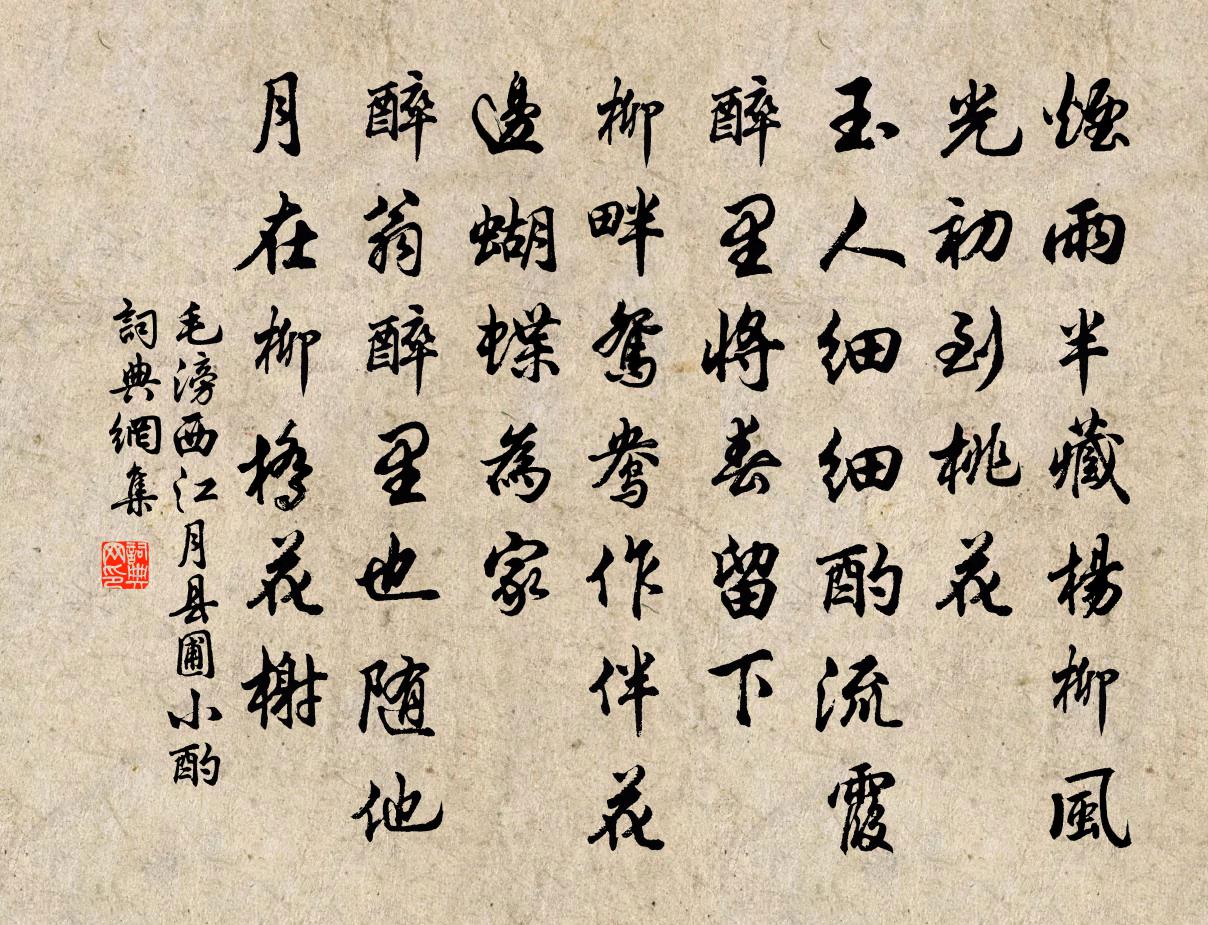 煙雨半藏楊柳風
光初到桃花
玉人細細酌流霞
醉里將春留下
柳畔鴛鴦作伴花
邊蝴蝶為家
醉翁醉里也随他
月在柳橋花榭
毛滂西江月县圃小酌
詞典網集
詞典
网印